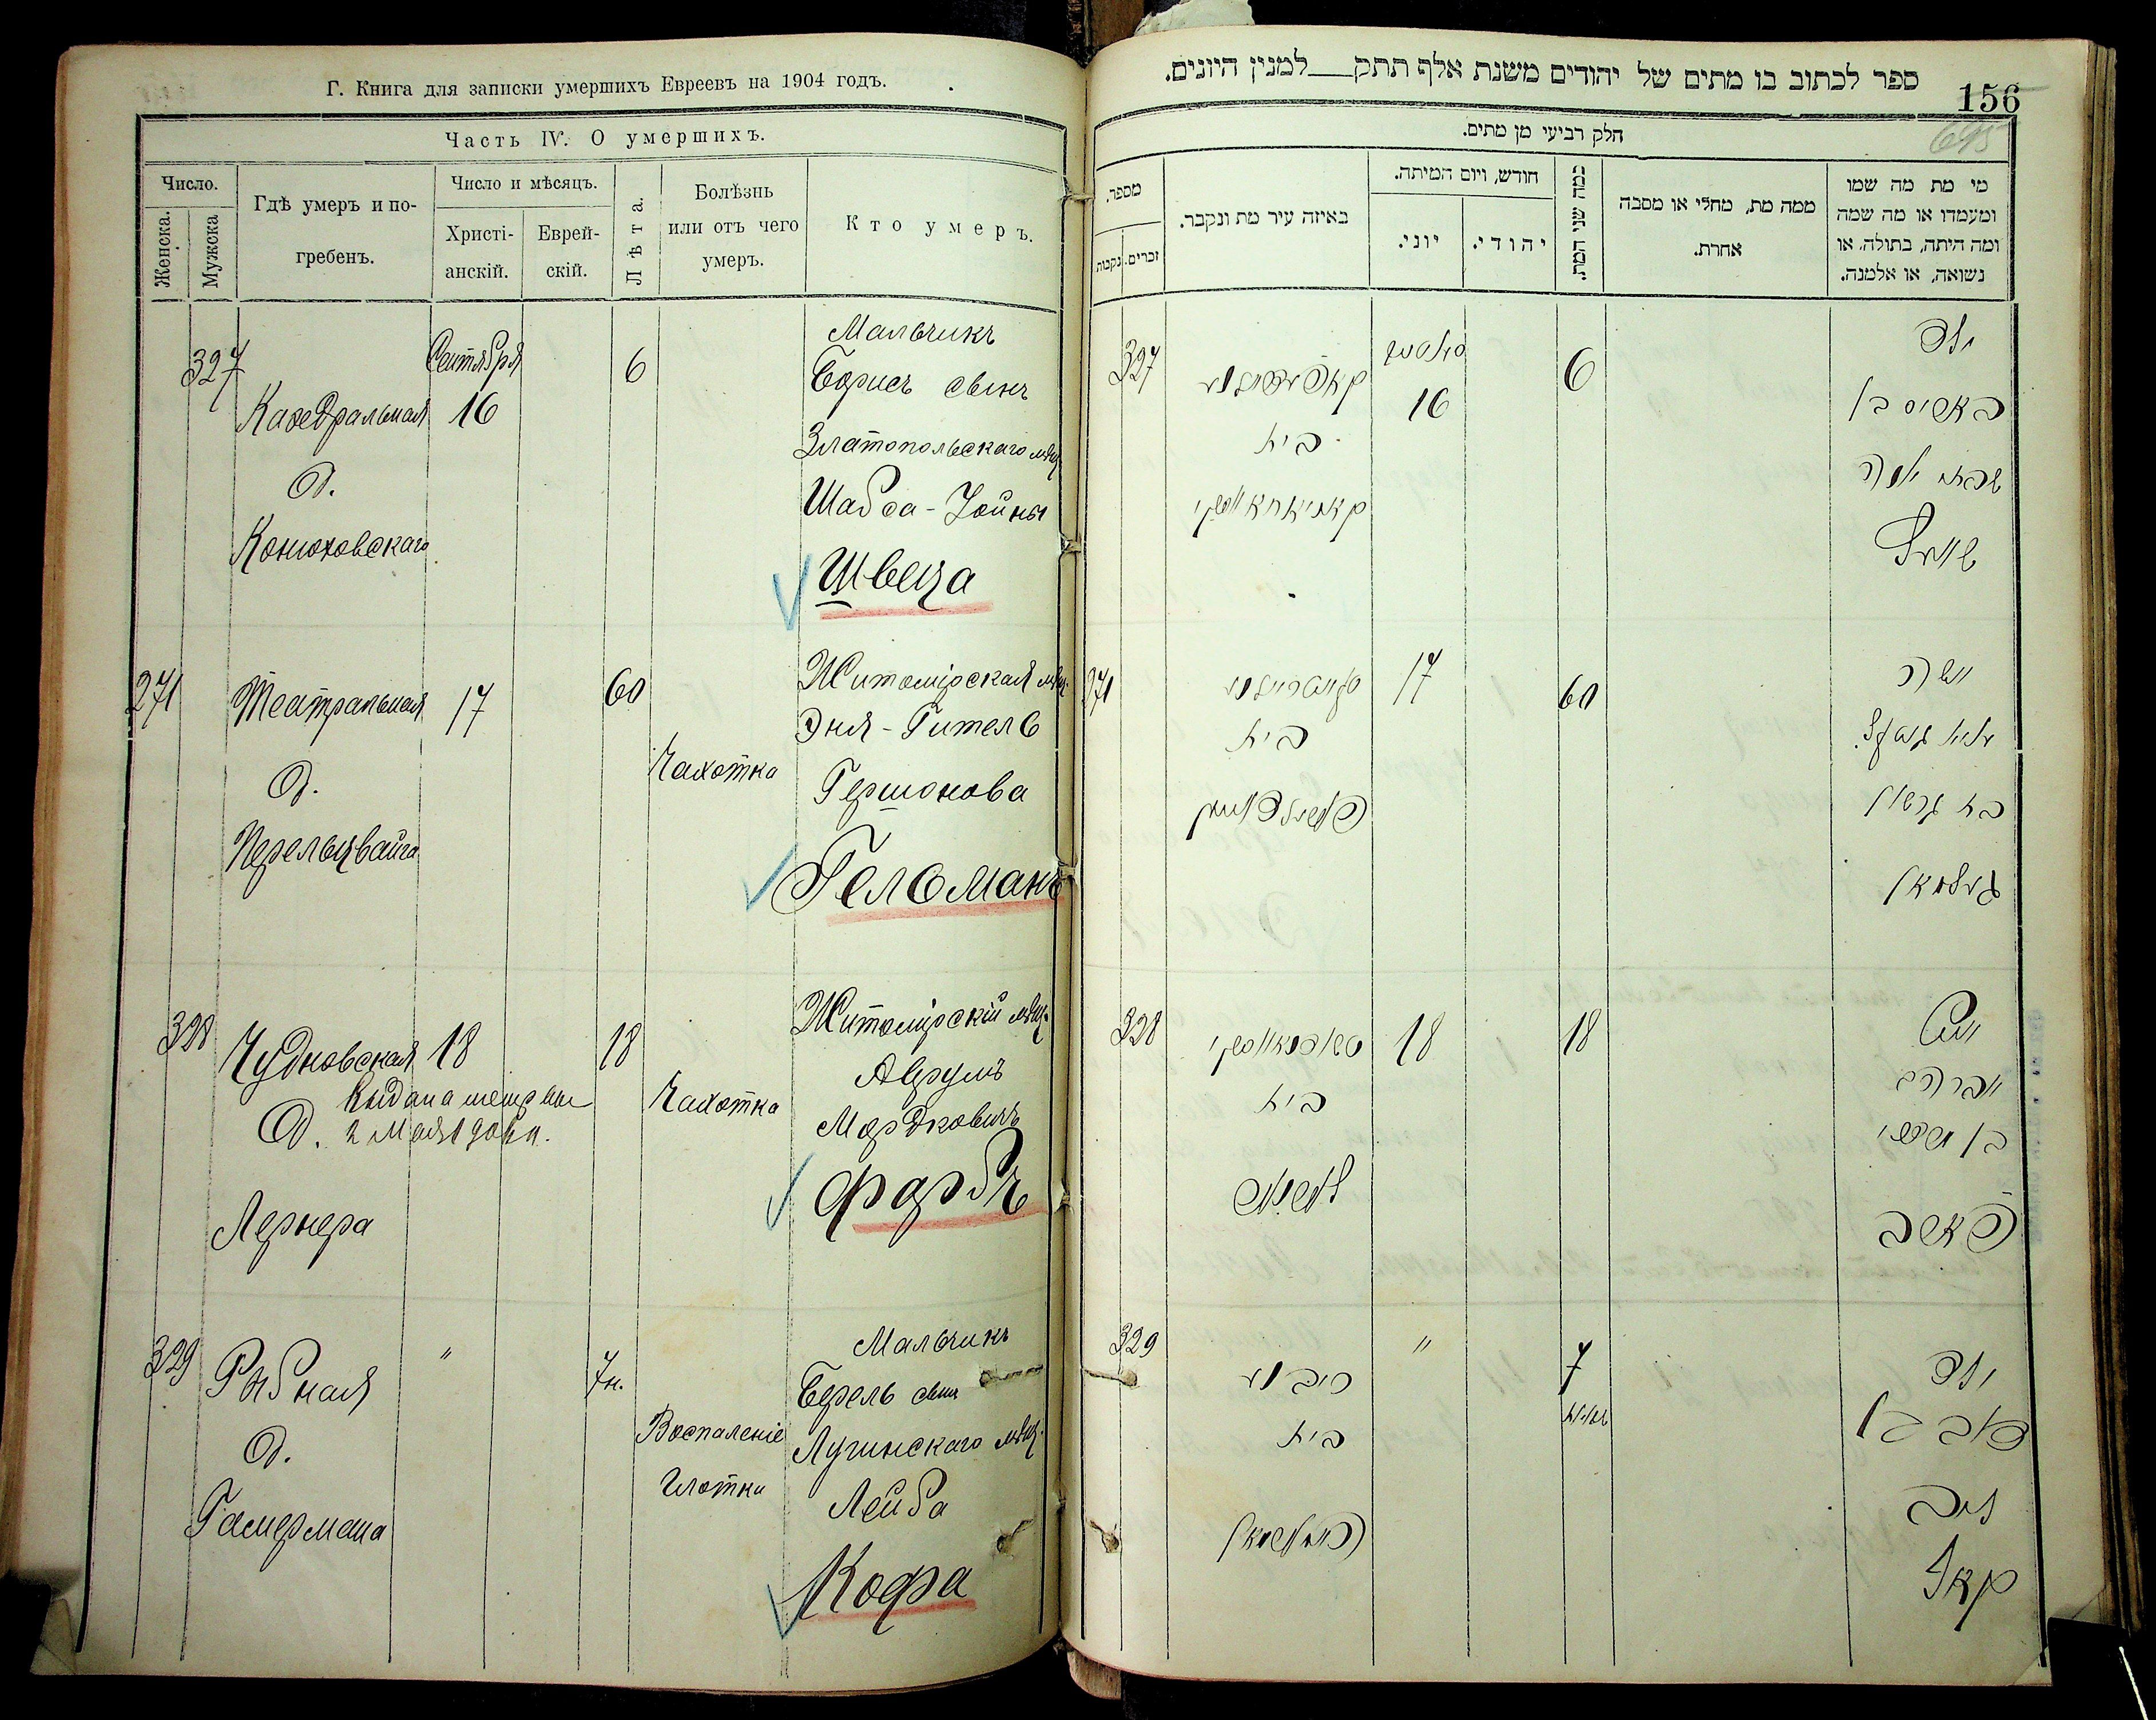 Г. Книга для записки умершихъ Евреевъ на 1904 годъ.
Часть IV. О умершихъ.
Число.
Женска.
Мужска
Гдѣ умеръ и по-
гребенъ.
Число и мѣсяцъ.
Христі-
анскій.
Еврей-
скій.
Лѣта.
Болѣзнь
или отъ чего
умеръ.
Кто умеръ.
327
Кафедральная
д.
Конюховскаго
Сентября
16
6
Мальчикъ
Борисъ сынъ
Златопольскаго мѣщ.
Шабса-Іойны
Швеца
271
Театральная
д.
Перельцвайга
17
60
Чахотка
Житомірская мѣщ.
Эня-Гитель
Гершонова
Гельманъ
328
Чудновская
д.
Лернера
18
18
Чахотка
Житомірскій мѣщ.
Аврумъ
Мордковичъ
Фарбъ
329
Рыбная
д.
Гамермана
"
7 н.
Воспаленіе
глотки
Мальчикъ
Берель сынъ
Лугинскаго мѣщ.
Лейба
Кофа
ספר לכתוב בו מתים של יהודים משנת אלף תתק למנין היונים.
156
695
חלק רביעי מן מתים.
מספר.
זכרים.
נקבות
באיזה עיר מת ונקבר.
חודש, ויום המיתה.
יוני.
יהודי.
כמה שני המת.
ממה מת, מחלי או מסבה
אחרת.
מי מת מה שמו
ומעמדו או מה שמה
ומה היתה, בתולה, או
נשואה, או אלמנה.
327
בית
16
6
ילד
באריס בן
שבסי יונה
שוועץ
271
בית
17
60
אשה
עניא גיטל
בת גרשון
געלמאן
328
בית
לערנער
18
18
איש
אברהם
בן מרדכי
פארב
329
בית
"
7
ילד
בן
ליב
קאף